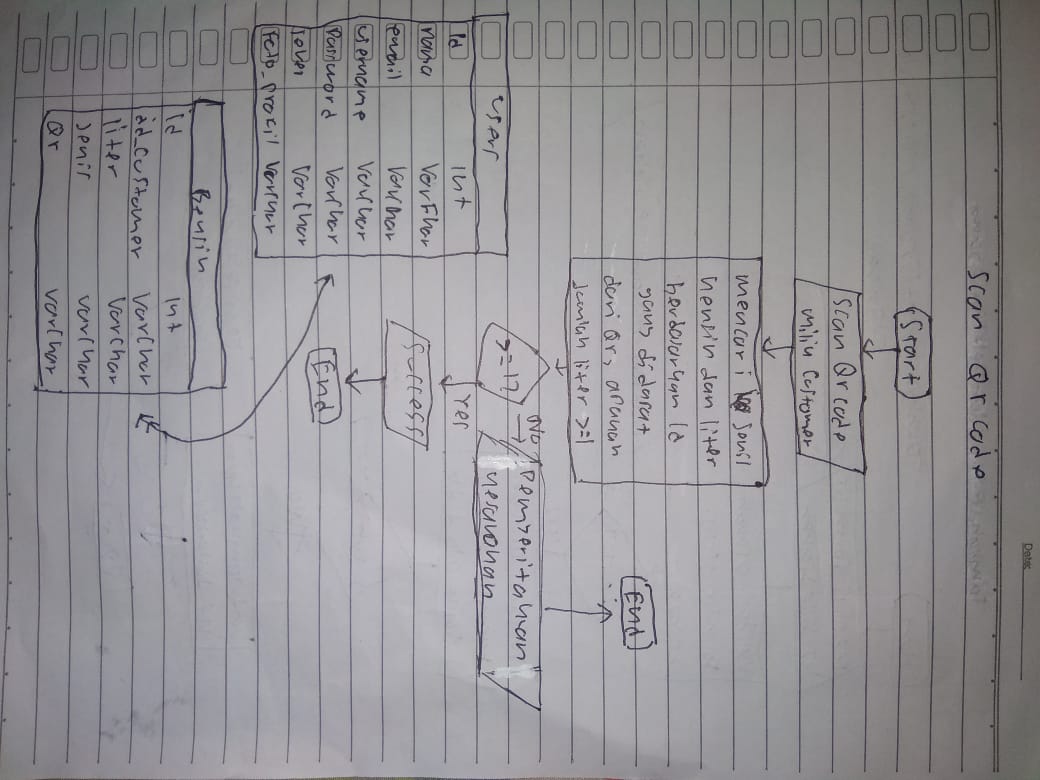 Date:
Scan Qr Code
Start
Scan Qr code
milik Customer
mencari jenis
bensin dan liter
berdasarkan Id
yang didapat
dari Qr, apakah
jumlah liter >=1
>=1?
No
Pemberitahuan
kesalahan
End
Yes
Success
End
users
id int
nama Varchar
email Varchar
username Varchar
Password Varchar
token Varchar
foto_profil Varchar
Bensin
id int
id_customer varchar
liter varchar
jenis varchar
Qr varchar